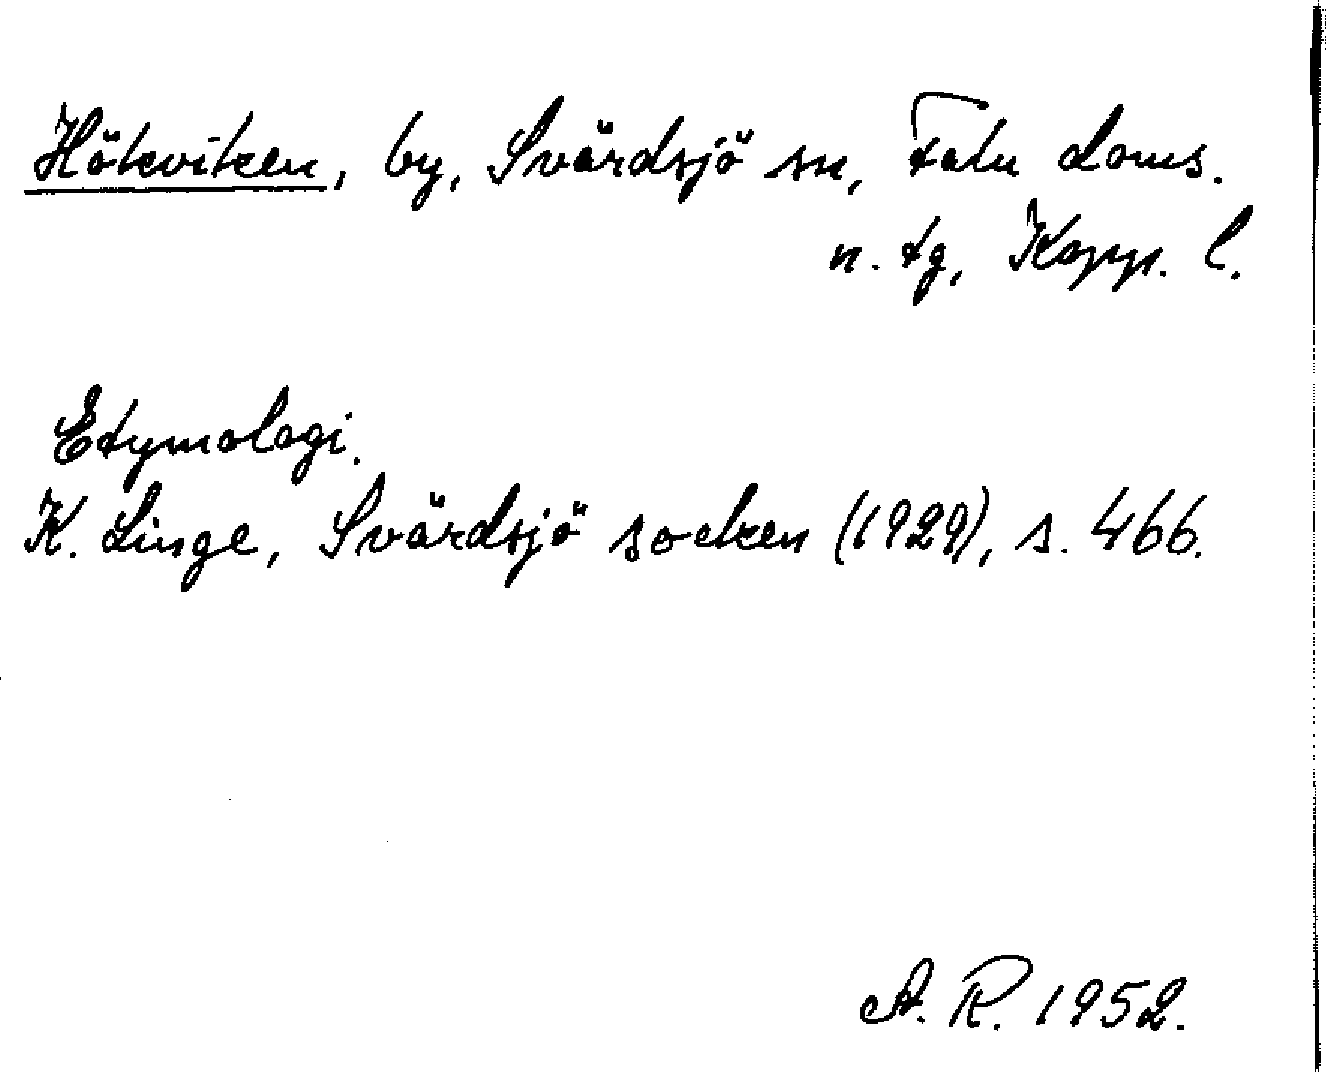 Hökviken, by, Svärdsjö sn, Falu doms.
n. tg, Kopp. l.
Etymologi.
K. Linge, Svärdsjö socken (1929), s. 466.
A. R. 1952.